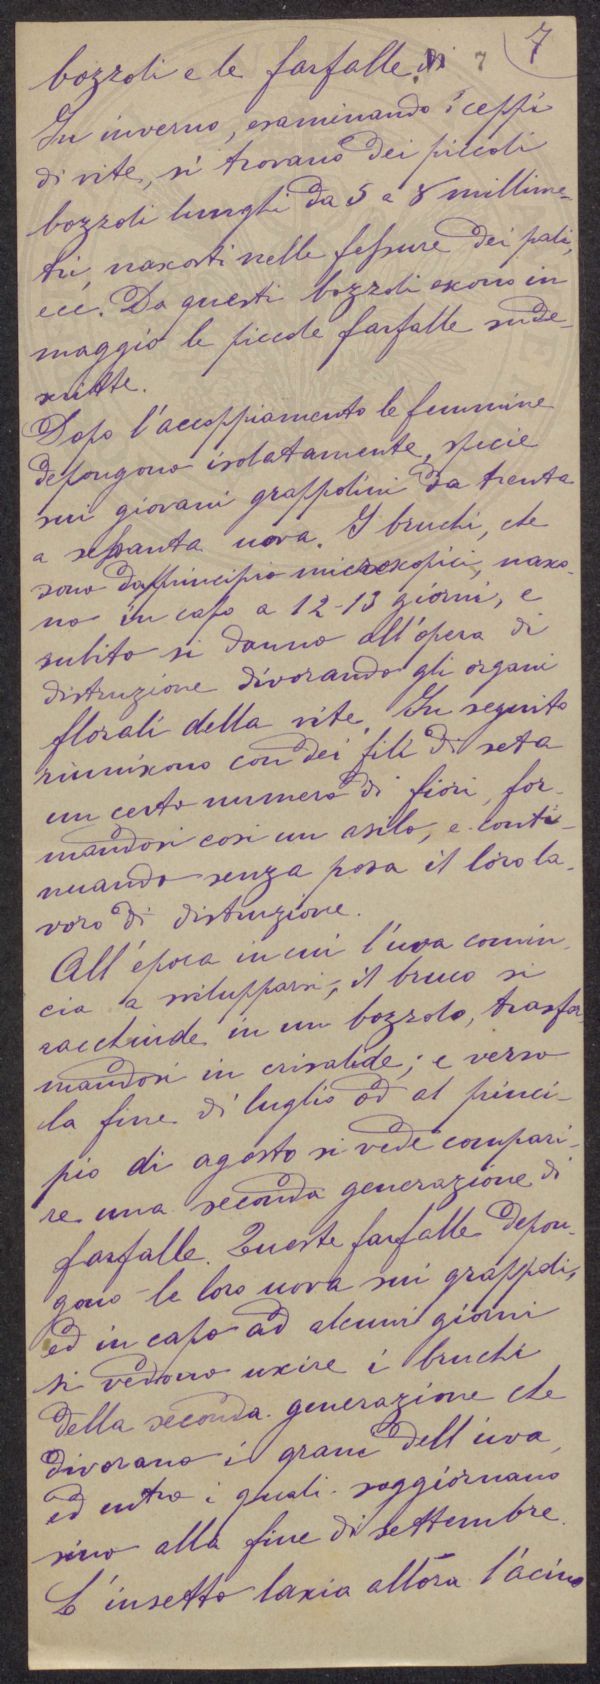 7
7
bozzoli e le farfalle.
In inverno, esaminando i ceppi
di vite, si trovano dei piccoli
bozzoli lunghi da 5 a 8 millime-
tri, nascosti nelle fessure dei pali,
ecc. Da questi bozzoli escono in
maggio le piccole farfalle sude-
scritte.
Dopo l'accoppiamento le femmine
depongono isolatamente, specie
sui giovani grappolini da trenta
a sessanta uova. I bruchi, che
sono dapprincipio microscopici, nasco-
no in capo a 12-13 giorni, e
subito si danno all'opera di
distruzione divorando gli organi
florali della vite. In seguito
riuniscono con dei fili di seta
un certo numero di fiori, for-
mandosi così un asilo, e conti-
nuando senza posa il loro la-
voro di distruzione.
All'epoca in cui l'uva comin-
cia a svilupparsi, il bruco si
racchiude in un bozzolo, trasfor
mandosi in crisalide; e verso
la fine di luglio od al princi-
pio di agosto si vede compari-
re una seconda generazione di
farfalle. Queste farfalle depon-
gono le loro uova sui grappoli,
ed in capo ad alcuni giorni
si vedono uscire i bruchi
della seconda generazione che
divorano i grani dell'uva,
ed entro i quali soggiornano
sino alla fine di settembre.
L'insetto lascia allora l'acino